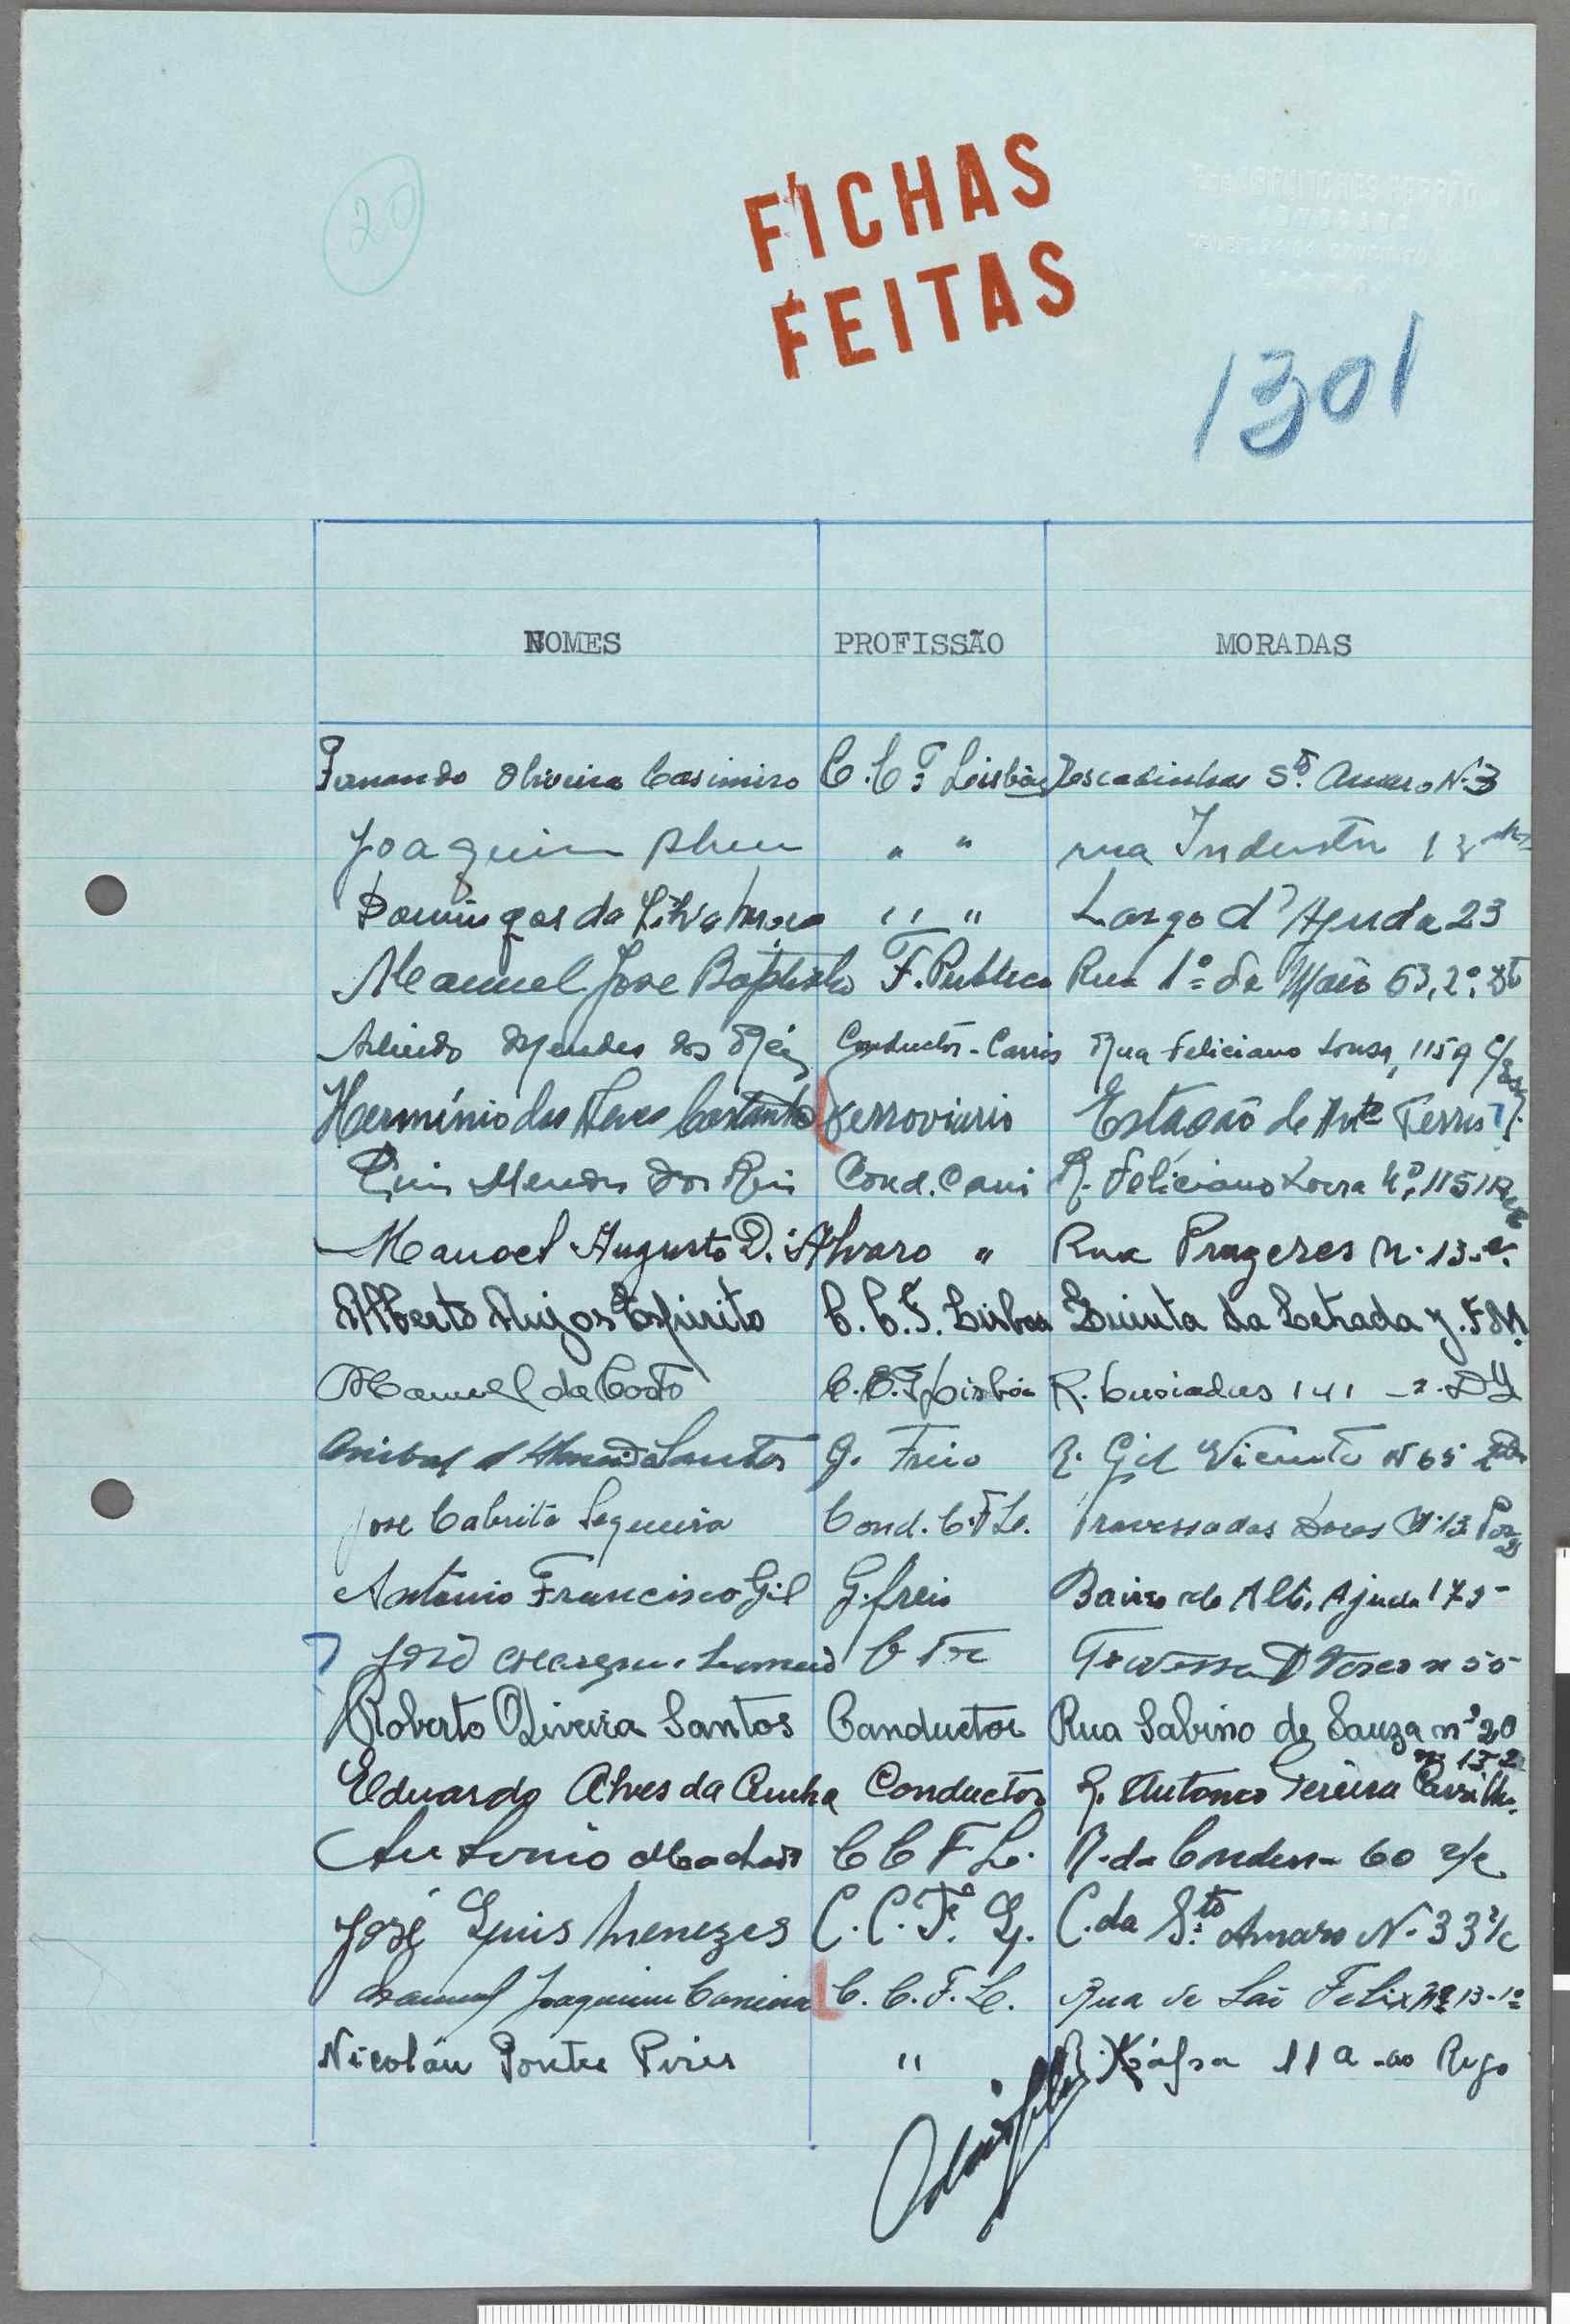 20
FICHAS
FEITAS
1301
NOMES PROFISSÃO MORADAS
Fernando Oliveira Casimiro C.C.F Lisbôa Escadinhas Sto. Amaro N.3
Joaquim Abreu " " rua Industri 13
Domingos da Silva " " Largo d'Ajuda 23
Manuel Jose Baptista F. Publico Rua 1º de Maio 63, 2º, Dto
Arlindo Mendes dos Reis Conductor-Carris Rua Feliciano Sousa, 115 A
Hermínio das Neves ferroviario Estação de Terra
Luis Mendes dos Reis Cond. Carris R. Feliciano Sousa Nº. 115
Manoel Augusto D. Alvaro " Rua Prazeres N. 13
Alberto Anjos Espirito C.C.F. Lisboa Quinta da J.F.M.
Manuel da Costo C.C.F Lisbôa R. Lusiadas 141 - 2. D
Anibal d'Almeida Santos G. Freio R. Gil Vicente N 65
Jose Cabrita Sequeira Cond. C.F.L. Travessa das Dores Nº 13
António Francisco Gil G. freio Bairro do Alto, Ajuda 179
José C Travessa D Vasco n 55
Roberto Oliveira Santos Conductor Rua Sabino de Sauza nº 20
Eduardo Alves da Cunha Conductor R. Antonio Pereira Carrilho
nº 13, 2
Antonio Machado C C F L. R. da Condessa 60 r/c
José Luis Menezes C.C.F. L. C. da Sto. Amaro N. 33 r/c
Manuel Joaquim C. C.F.L. Rua de São Felix Nº 13-1º
Nicoláu Pontes Pires " R. 11 a - ao Rego